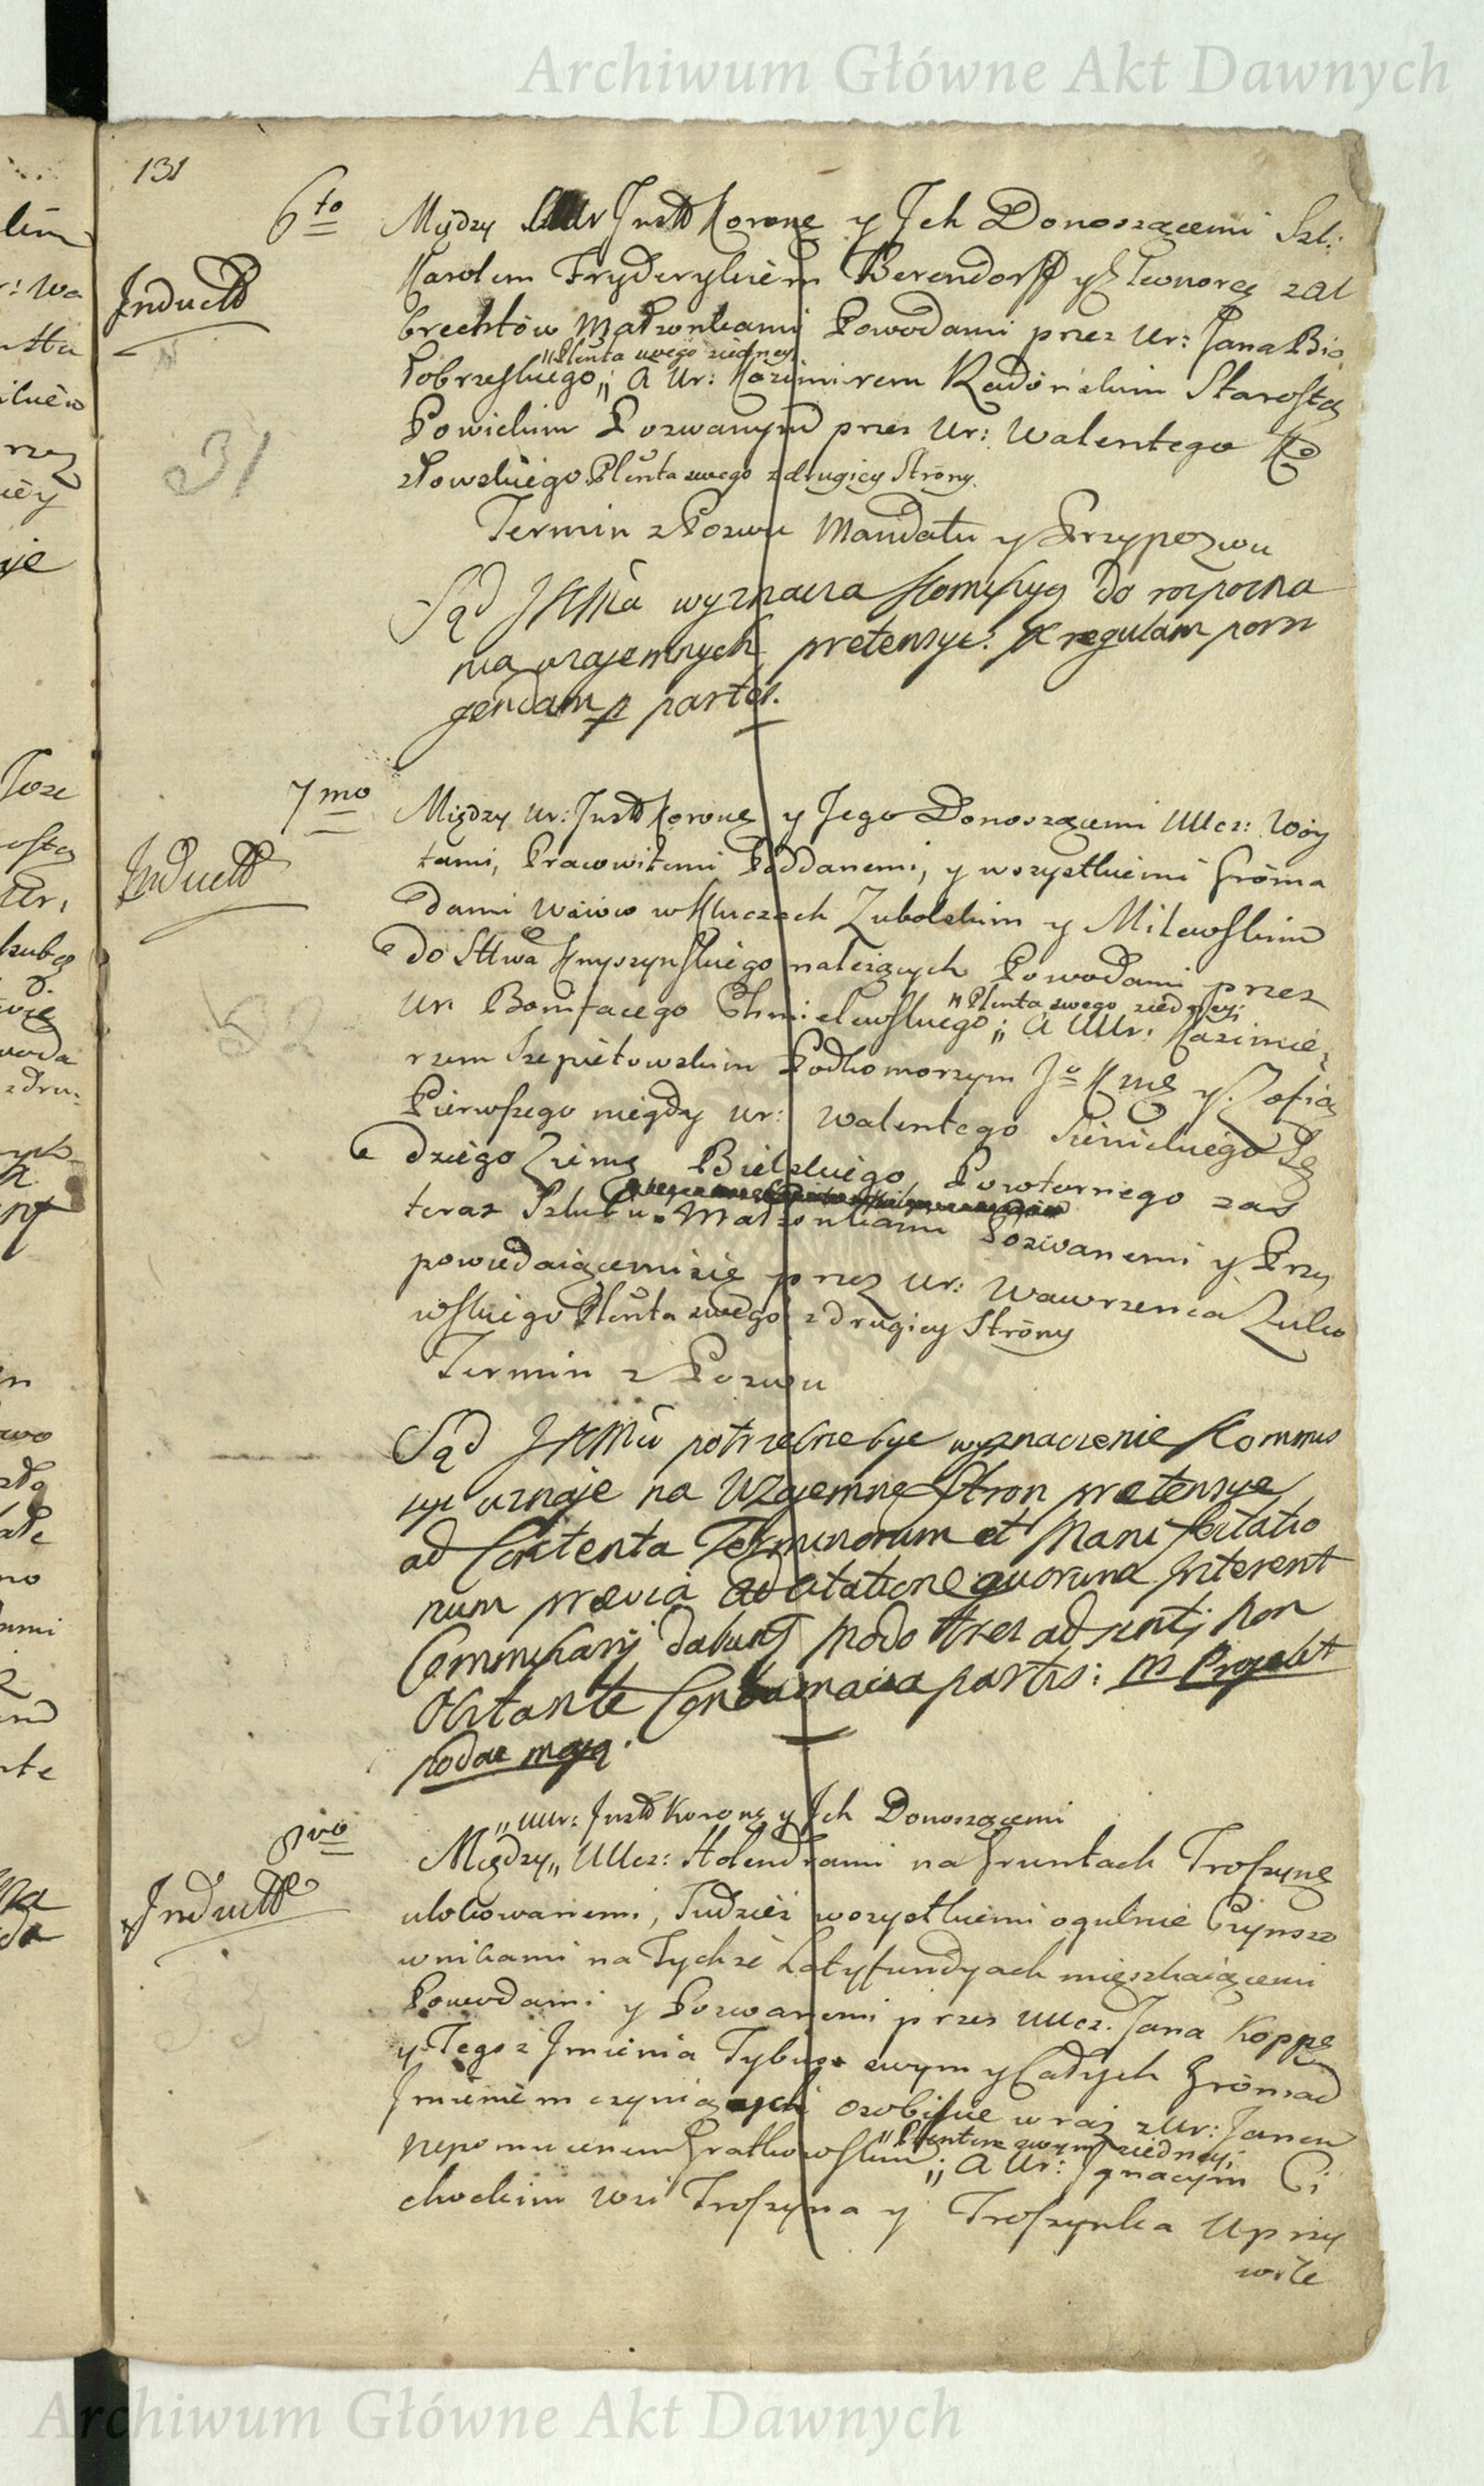 Archiwum Główne Akt Dawnych
131
6to
Między Ur Instt Koronę y Ich Donoszącemi Szl:
Inductt
Karolem Fryderykiem Berendorff y Eleonorą z Al
brechtów Małżonkami Powodami przez Ur: Jana Bio
"Plenta swego z iedney
łobrzeskiego,, A Ur: Kazimirem Radońskim Starostą
31
Powickim Pozwanym przez Ur: Walentego Ko
złowskiego Plenta swego z drugiey Strony.
Termin z Pozwu Mandatu y Przypozwu
Sąd JKMci wyznacza Kommissyą do rozpozna
nia wzajemnych pretensyi. Et regulam porri
gendam p partes.
7mo
Między Ur: Instt Koronę y Jego Donoszącemi UUcz: Woy
Inductt
tami, Pracowitemi Poddanemi, y wszystkiemi Groma
dami Wsiów w Kluczach Zubolskim y Milewskim
do Sttwa Knyszynskiego należących Powodami przez
32
"Plenta swego z iedney;
Ur. Bonifacego Chmielewskiego,, A UUr: Kazimie
rzem Szepietowskim Podkomorzym J. K Mci y Zofią
Pierwszego niegdy Ur: Walentego Sienickiego Sę
dziego Ziemę Bielskiego Powtornego zaś
teraz Szlubu Małżonkami Pozwanemi y Przy
powiedaiącemi się przez Ur: Wawrzenca Zulew
wskiego Plenta swego z drugiey Strony
Termin z Pozwu
Sąd JKMci potrzebne bydź wyznaczenie Kommis
syi uznaje na Wzajemne Stron pretensye
ad Contenta Terminorum et Manifestatio
num prævia adcitatione quorum interent
Commissarij dabunt modo tres adsint; non
Obstante Contumacia partis: Na Projekt
podać mają.
8vo
,, UUr: Instt Koronę y Ich Donoszącemi
Między,, UUcz: Holendrami na Gruntach Troszynę
Inductt
ulokowanemi, Tudzież wszystkiemi ogulnie Czynszo
wnikami na Tychże Latyfundyach mięszkaiącemi
33
Powodami y Pozwanemi przez UUcz. Jana Koppę
y Tegoż Imienia Tybus swym y Całych Gromad
Imieniem czyniących osobiscie wraz z Ur: Janem
"Plentem swym z iedney;
Nepomucenem Gratkowskim,, A Ur: Ignacym Ci
chockim Wsi Troszyna y Troszynka Uprzy
wile
Archiwum Główne Akt Dawnych